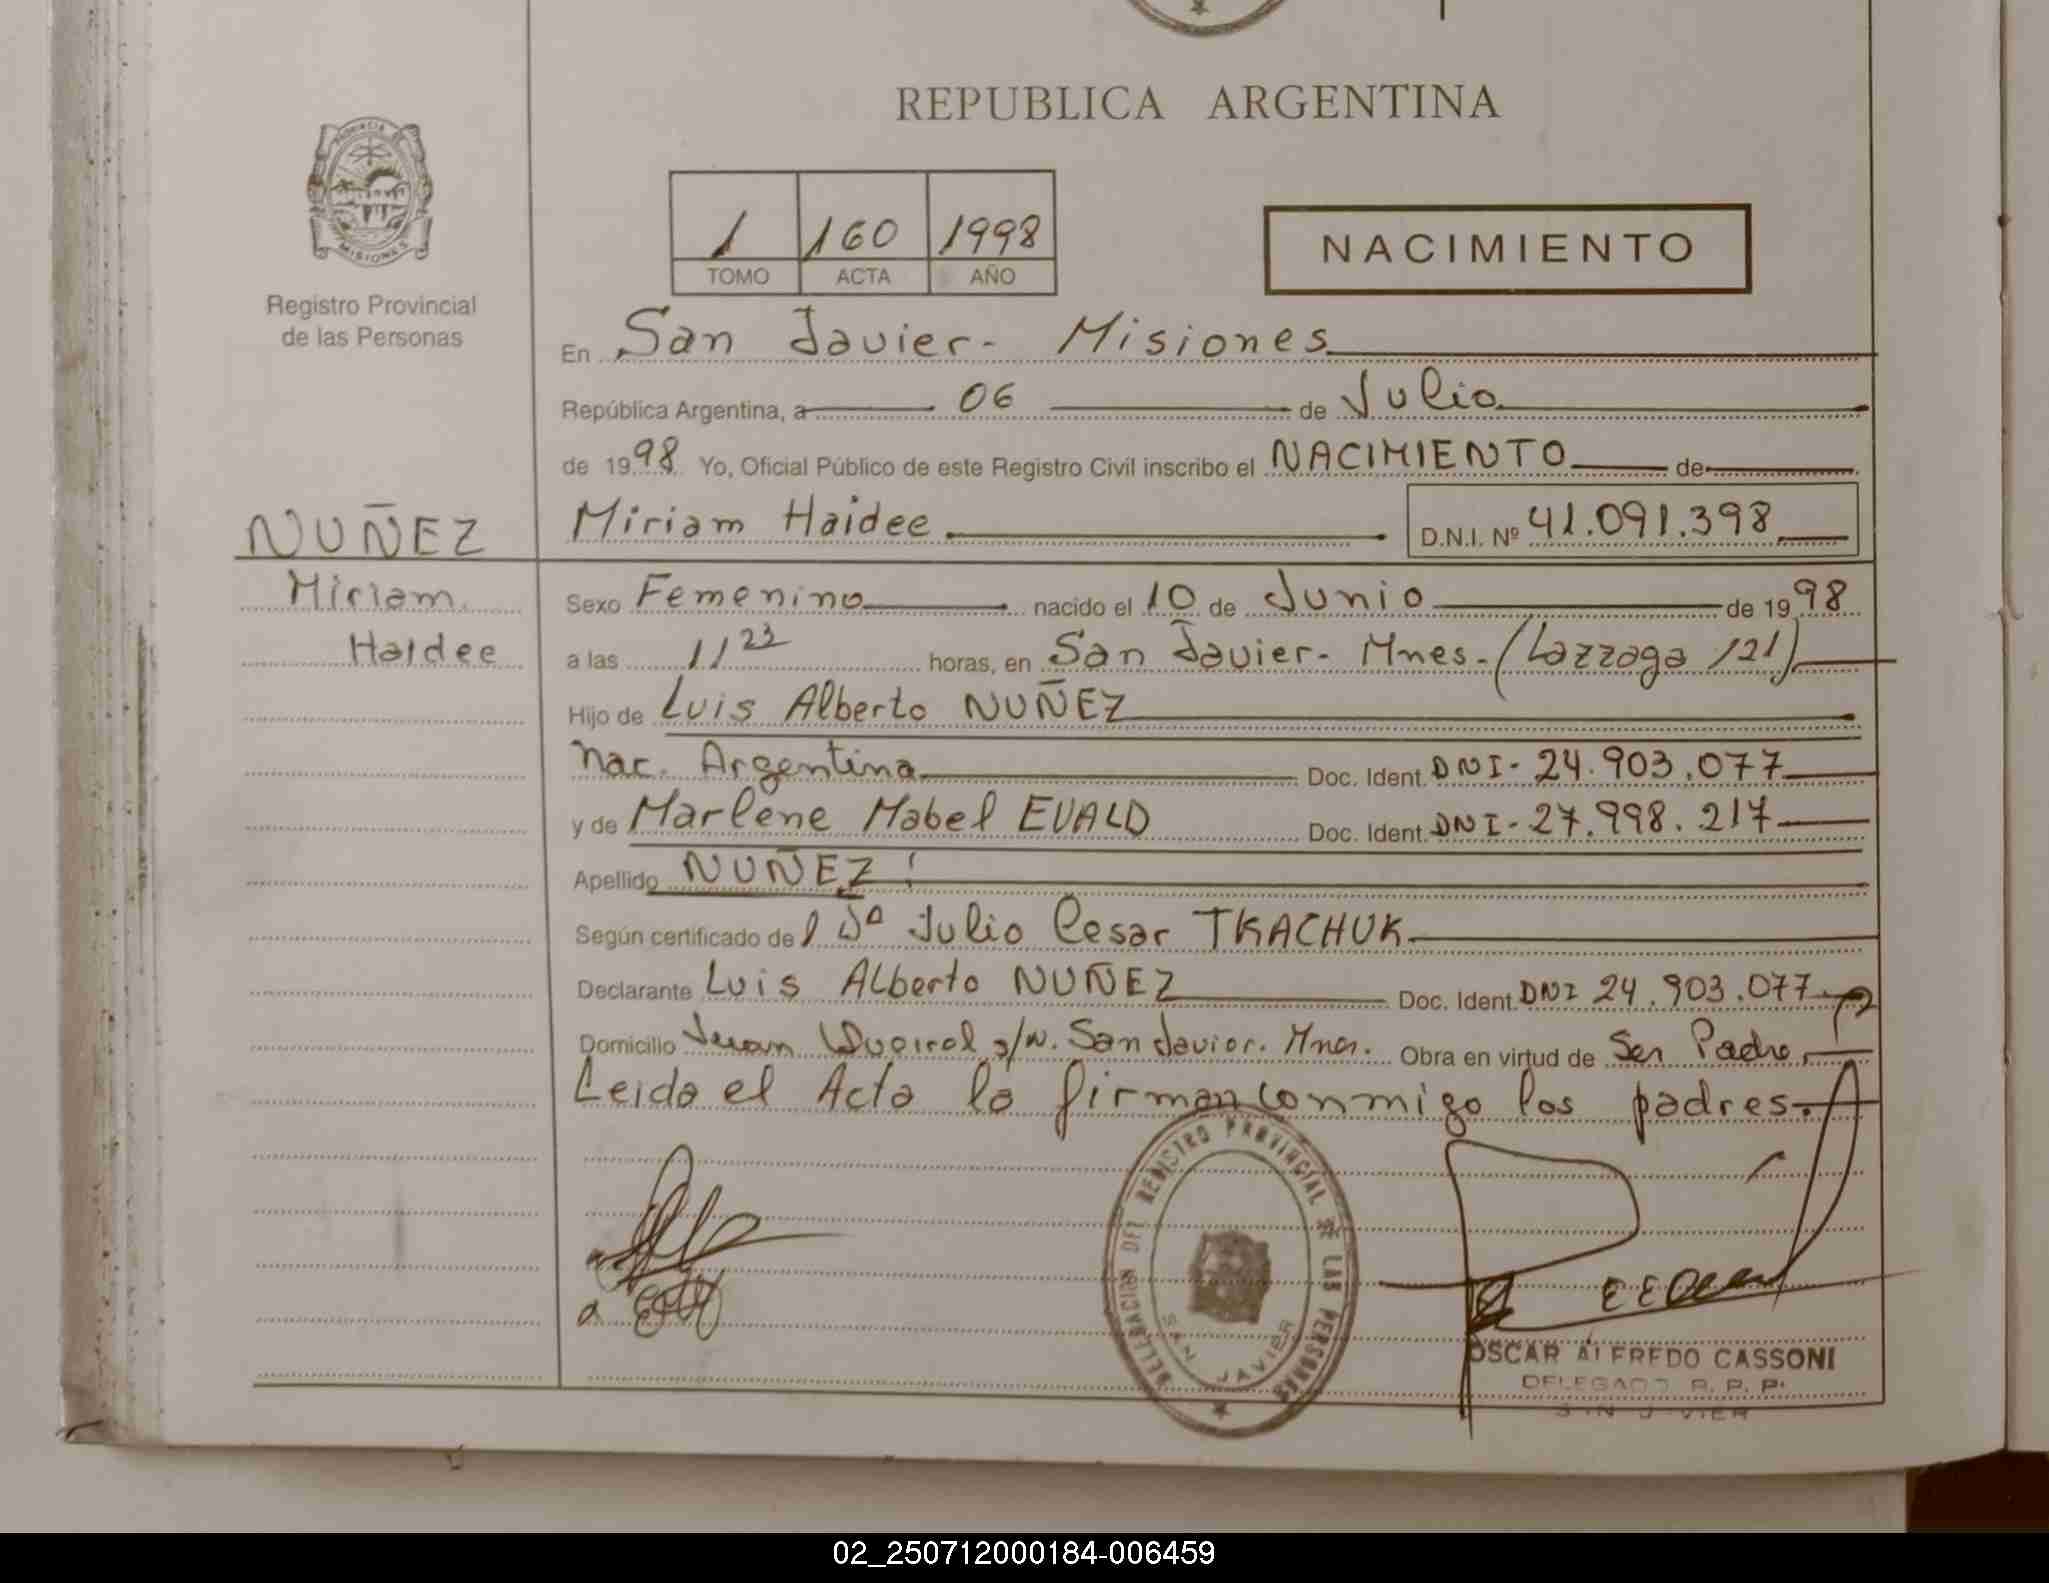 REPUBLICA ARGENTINA
PROVINCIA DE
MISIONES
Registro Provincial
de las Personas
1 160 1998
TOMO ACTA AÑO
NACIMIENTO
En San Javier - Misiones
República Argentina, a 06 de Julio
de 1998 Yo, Oficial Público de este Registro Civil inscribo el NACIMIENTO de
NUÑEZ
Miriam Haidee D.N.I. Nº 41.091.398
Miriam
Haidee
Sexo Femenino nacido el 10 de Junio de 1998
a las 11 23 horas, en San Javier - Mnes. - (Lazzaga 121)
Hijo de Luis Alberto NUÑEZ
Nac. Argentina Doc. Ident. DNI - 24.903.077
y de Marlene Mabel EVALD Doc. Ident. DNI - 27.998.217
Apellido NUÑEZ
Según certificado del Julio Cesar TKACHUK
Declarante Luis Alberto NUÑEZ Doc. Ident. DNI 24.903.077
Domicilio Juan s/n. San Javier. Mnes. Obra en virtud de Ser Padre
Leida el Acta la firman conmigo los padres.
DELEGACION DEL REGISTRO PROVINCIAL DE LAS PERSONAS
SAN JAVIER
OSCAR ALFREDO CASSONI
DELEGADO R. P. P.
SAN JAVIER
02_250712000184-006459